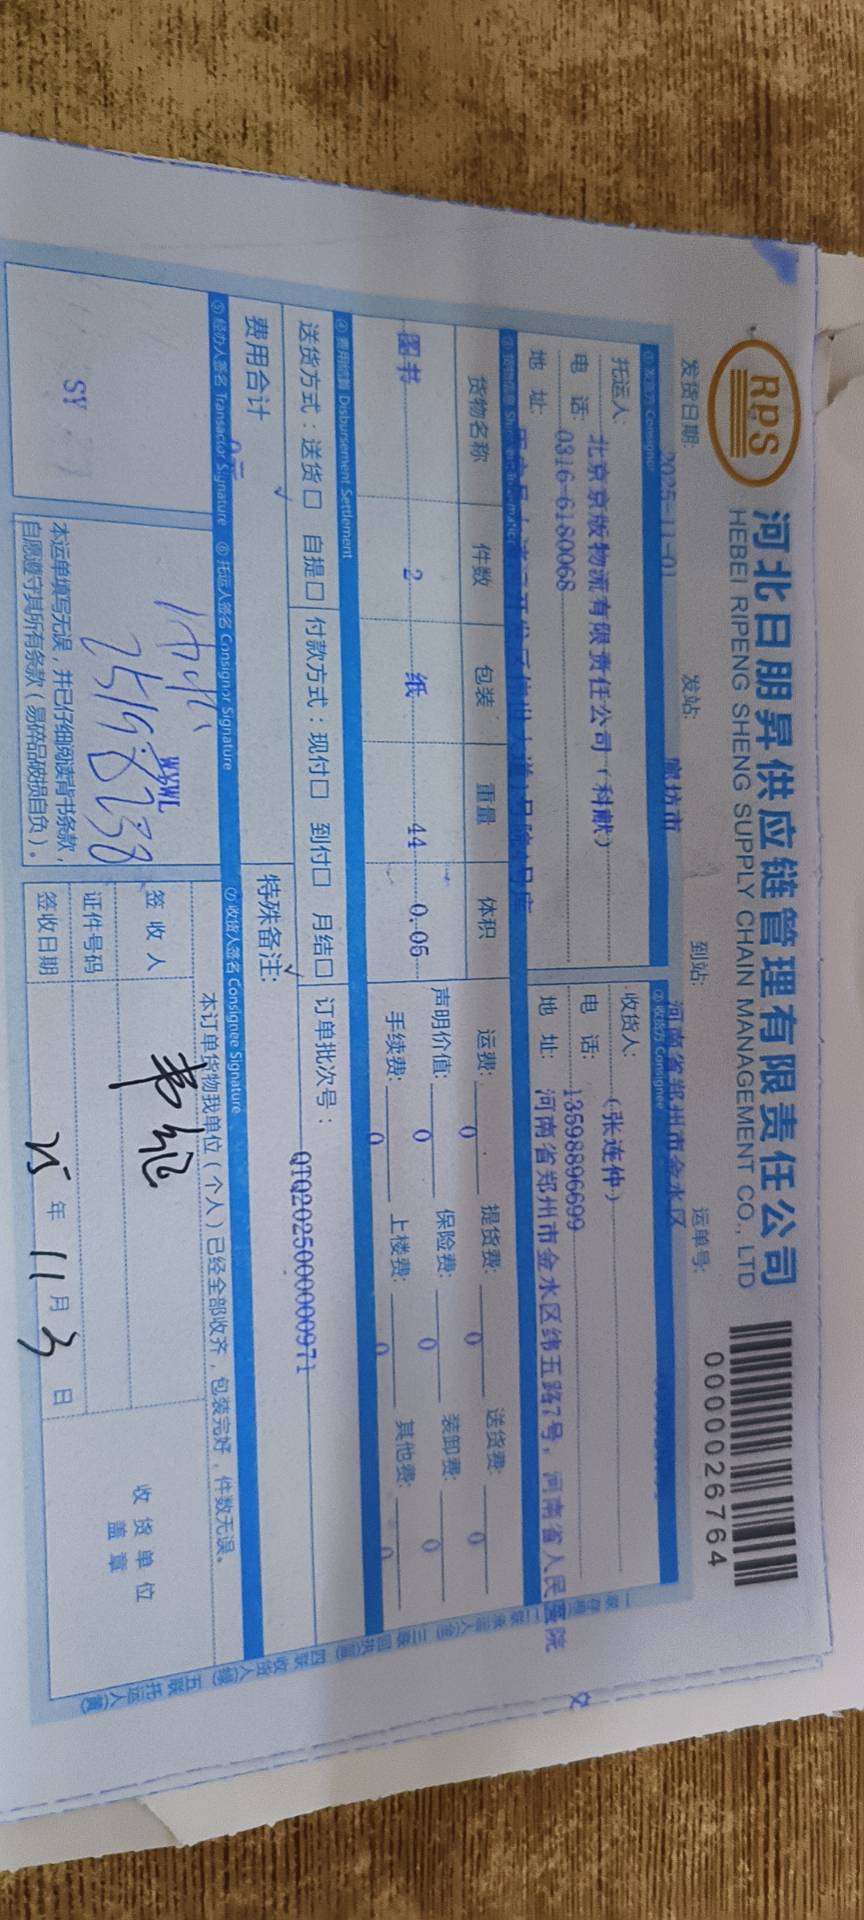 RPS
河北日朋昇供应链管理有限责任公司
HEBEI RIPENG SHENG SUPPLY CHAIN MANAGEMENT CO., LTD
0000026764
发货日期: 2025-11-01 发站: 廊坊市 到站: 河南省郑州市金水区 运单号:
① 发货方 Consignor ② 收货方 Consignee
托运人: 北京京版物流有限责任公司(科献) 收货人: (张连仲)
电 话: 0316-6180068 电 话: 13598896699
地 址: 地 址: 河南省郑州市金水区纬五路7号, 河南省人民医院
货物名称 件数 包装 重量 体积 运费: 0 提货费: 0 送货费: 0
图书 2 纸 44 0.05 声明价值: 0 保险费: 0 装卸费: 0
手续费: 0 上楼费: 0 其他费: 0
④ 费用结算 Disbursement Settlement
送货方式: 送货□ 自提□ 付款方式: 现付□ 到付□ 月结□ 订单批次号: QTQ2025000000971
费用合计 0元 特殊备注:
⑤ 经办人签名 Transactor Signature ⑥ 托运人签名 Consignor Signature ⑦ 收货人签名 Consignee Signature
本订单货物我单位(个人)已经全部收齐, 包装完好, 件数无误。
SY
WSWL
签 收 人
证件号码
收 货 单 位
盖 章
签收日期 25 年 11 月 3 日
本运单填写无误, 并已仔细阅读背书条款,
自愿遵守其所有条款(易碎品破损自负)。